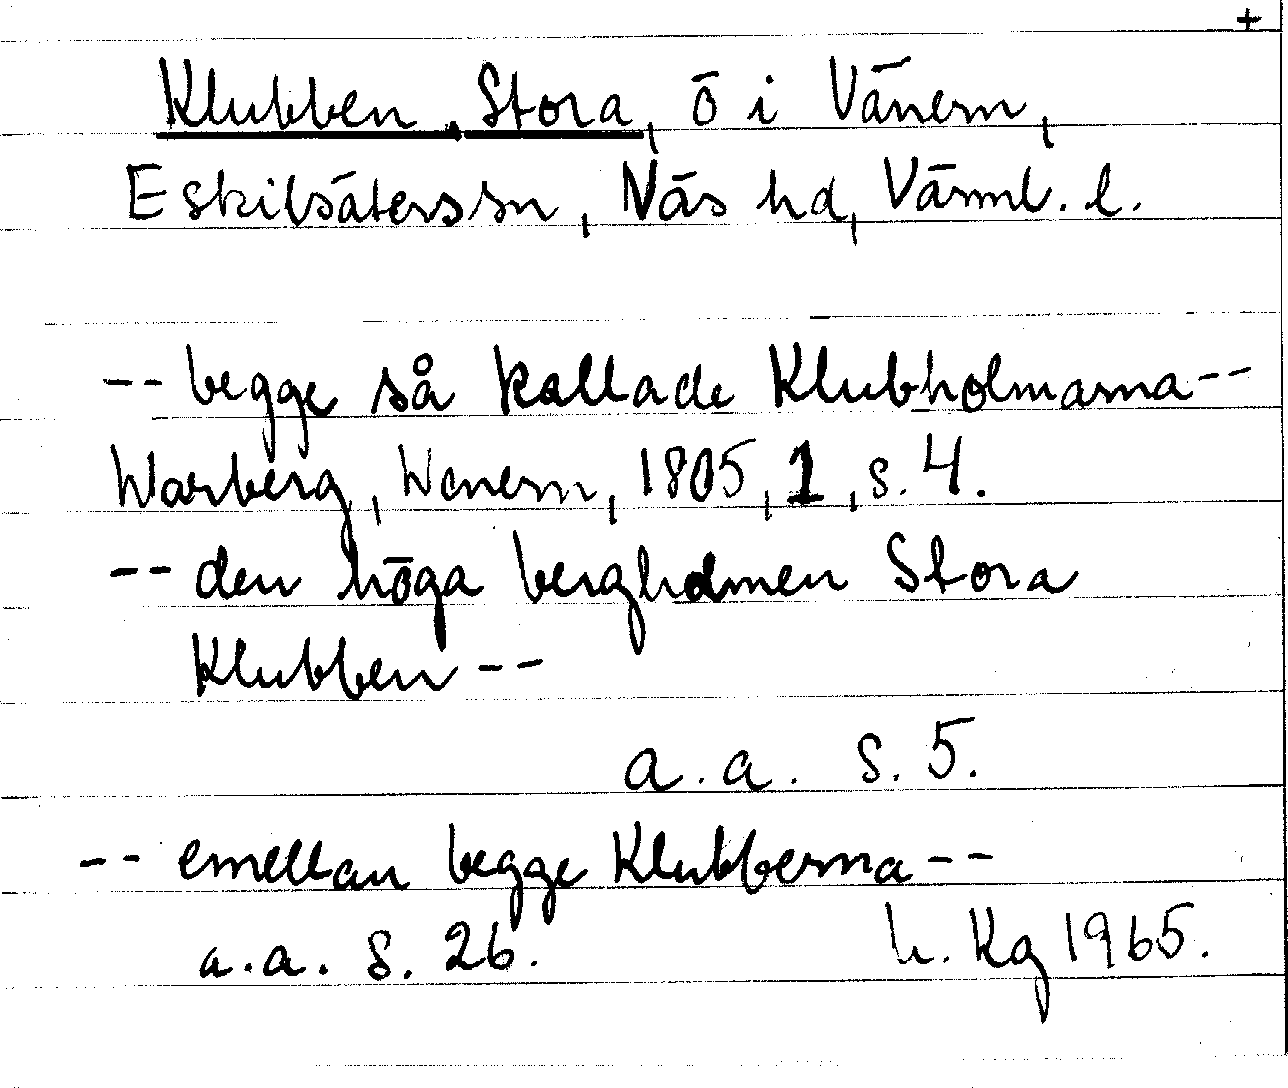 +
Klubben, Stora, ö i Vänern,
Eskilsäterssn, Näs hd, Värml. l.
-- begge så kallade Klubholmarna --
Warberg, Wenern, 1805, 1, s. 4.
-- den höga bergholmen Stora
Klubben --
a.a. s. 5.
-- emellan begge Klubberna --
a.a. s. 26. h. Kg 1965.